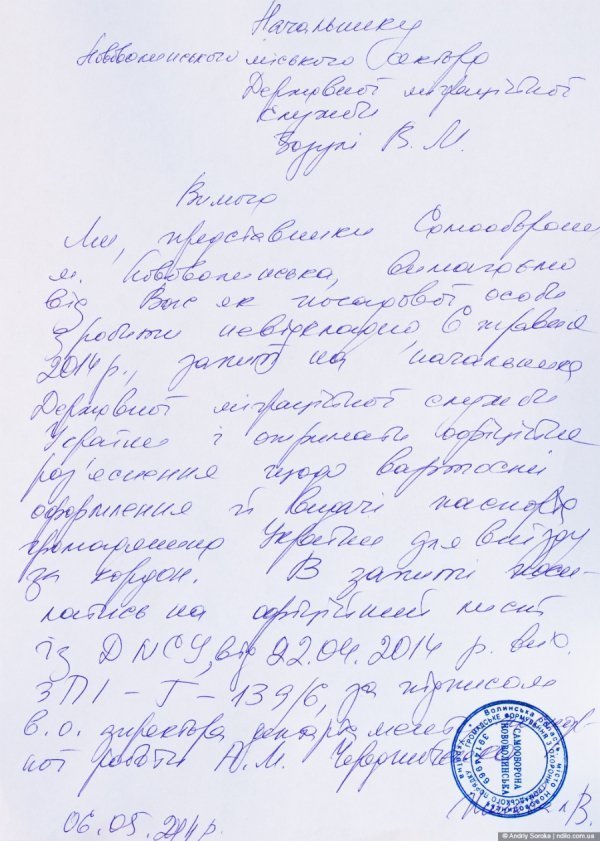 Начальнику
Нововолинського міського сектору
Державної міграційної
служби
Зозулі В. М.
Вимога
Ми, представники Самооборони
м. Нововолинська, вимагаємо
від Вас як посадової особи
зробити невідкладно 6 травня
2014 р., запит на начальника
Державної міграційної служби
України і отримати офіційне
роз'яснення щодо вартості
оформлення й видачі паспорта
громадянина України для виїзду
за кордон. В запиті поси-
латись на офіційний лист
із ДМСУ, від 22.04.2014 р. вих.
ЗПІ-Г-139/6, за підписом
в.о. директора департаменту
ної роботи А.М.
06.05.2014р.
САМООБОРОНА
НОВОВОЛИНСЬКА
© Andriy Soroka | ndilo.com.ua